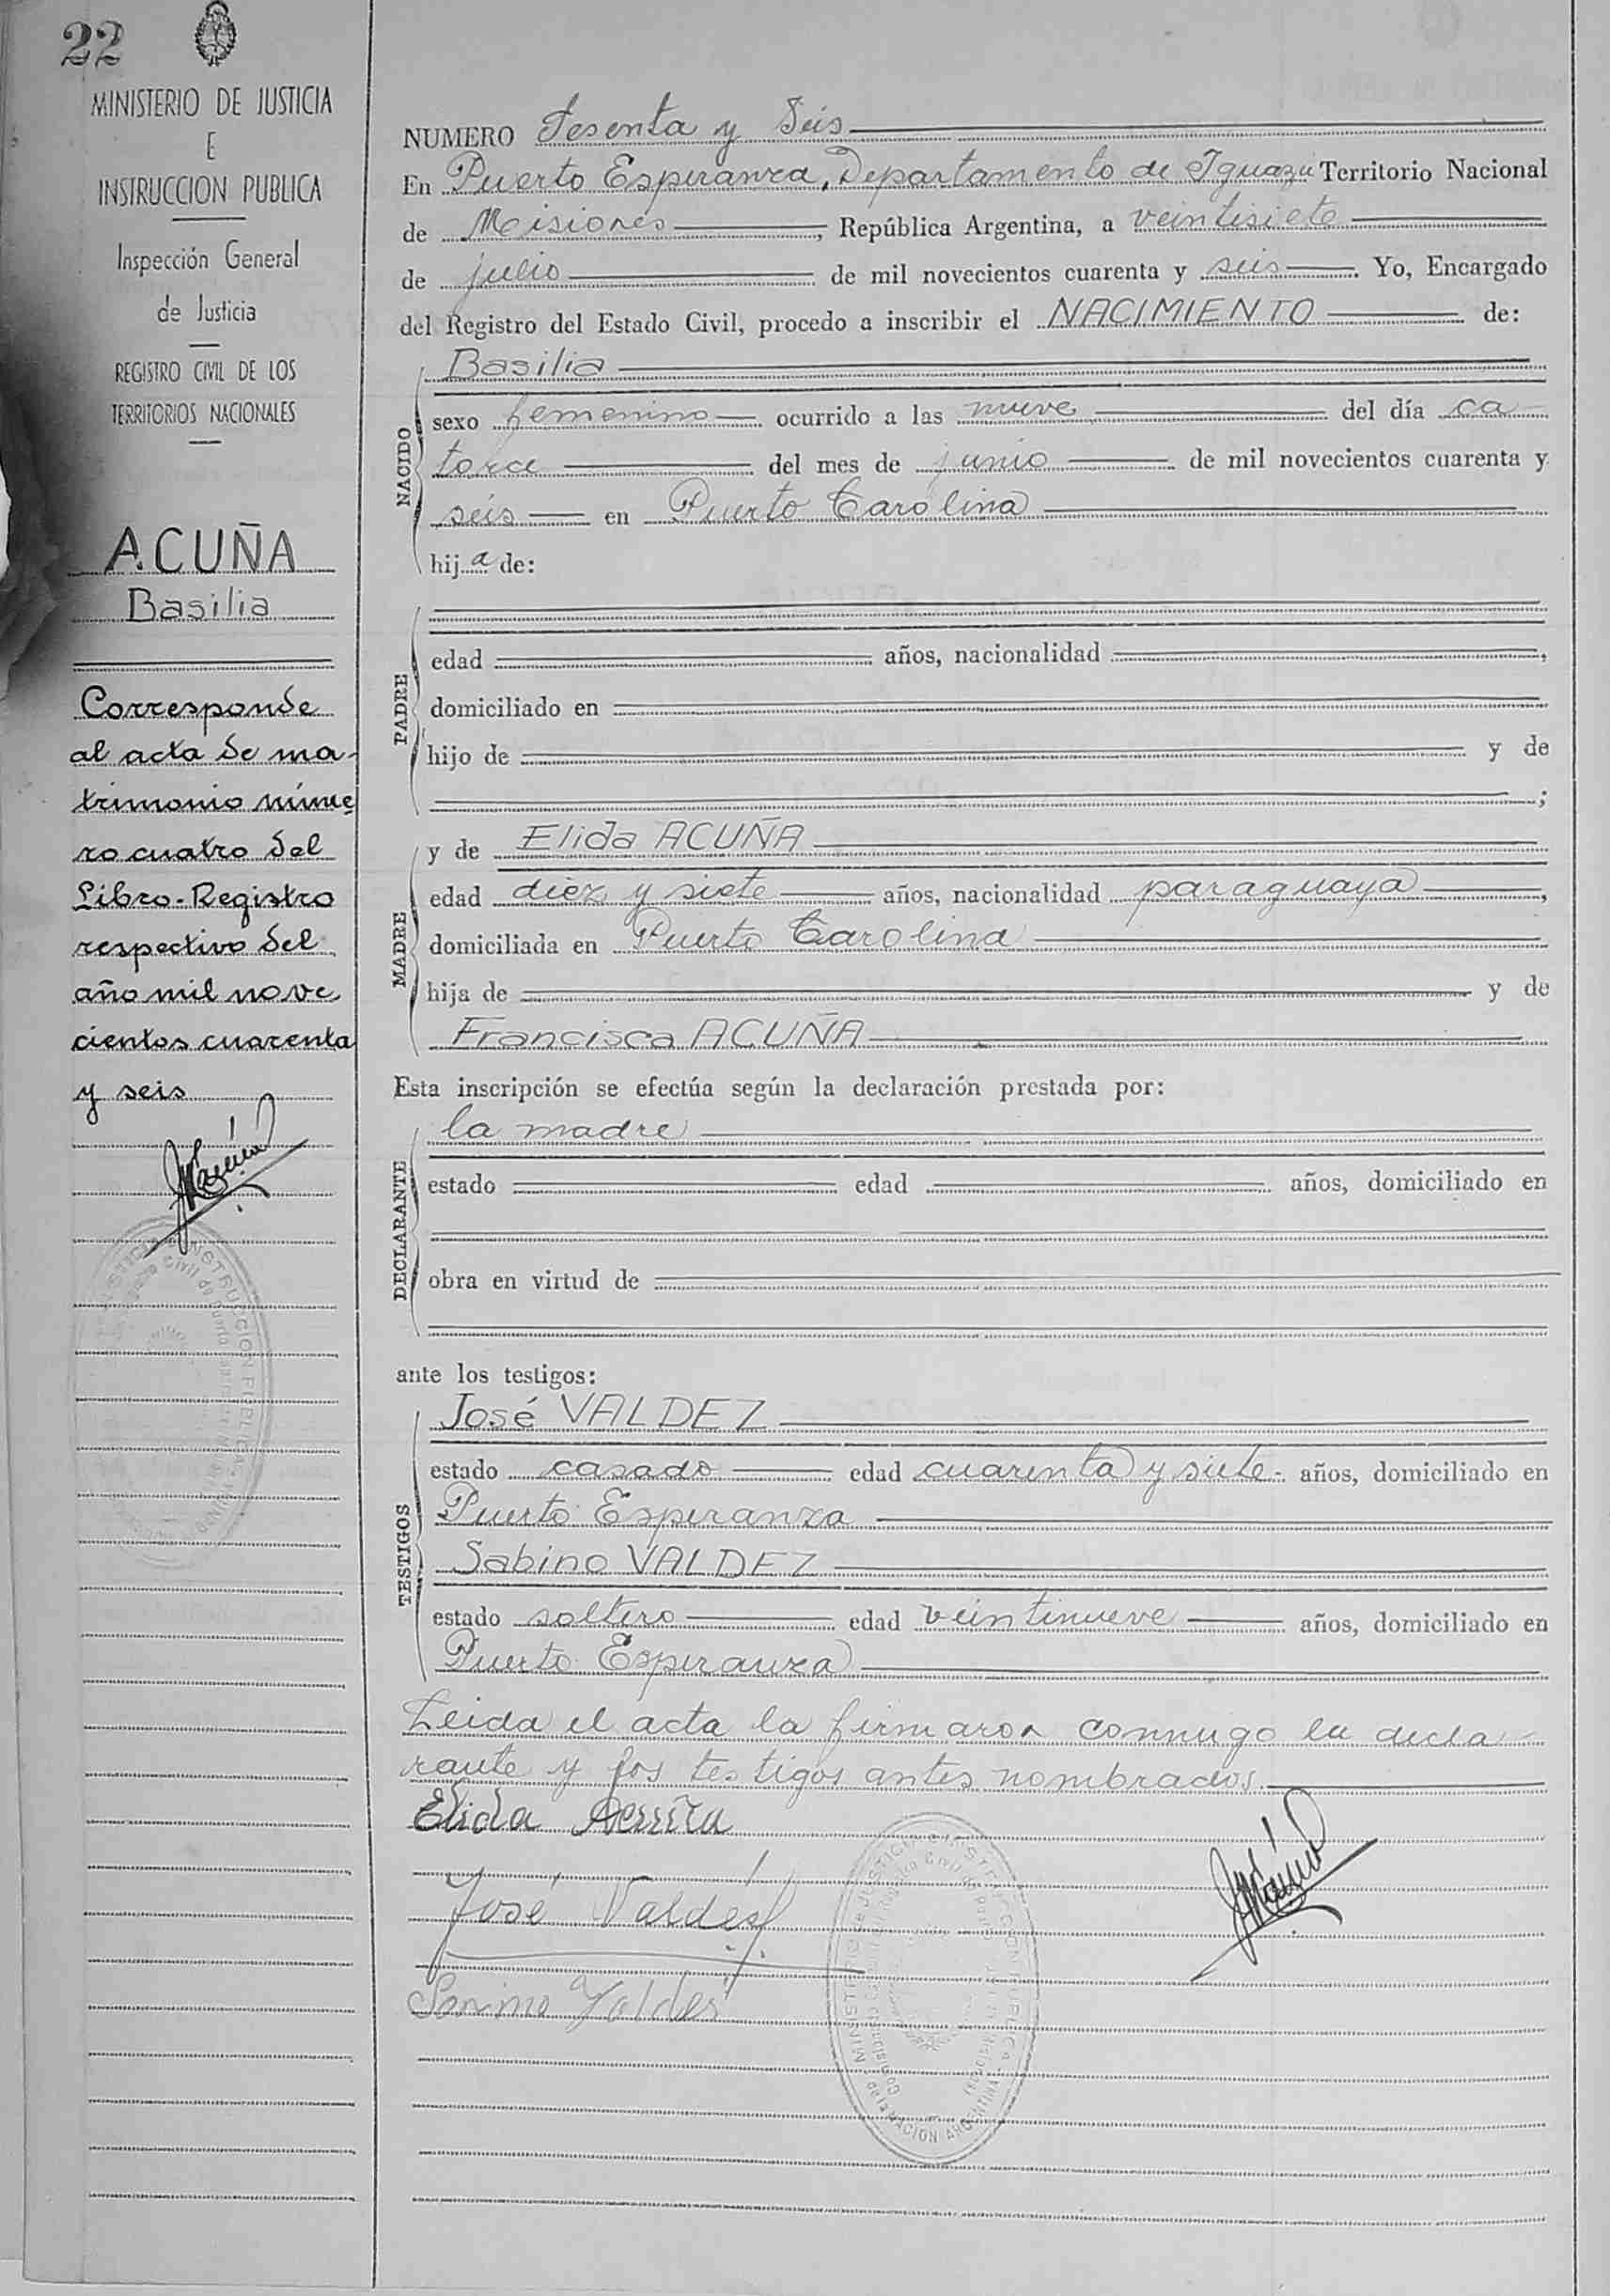 22
MINISTERIO DE JUSTICIA
E
INSTRUCCION PUBLICA
Inspección General
de Justicia
REGISTRO CIVIL DE LOS
TERRITORIOS NACIONALES
ACUÑA
Basilia
Corresponde
al acta de ma-
trimonio núme
ro cuatro del
Libro-Registro
respectivo del
año mil nove
cientos cuarenta
y seis
NUMERO Sesenta y Seis
En Puerto Esperanza, Departamento de Iguazú Territorio Nacional
de Misiones, República Argentina, a veintisiete
de julio de mil novecientos cuarenta y seis. Yo, Encargado
del Registro del Estado Civil, procedo a inscribir el NACIMIENTO de:
NACIDO
Basilia
sexo femenino ocurrido a las nueve del día ca
torce del mes de junio de mil novecientos cuarenta y
seis en Puerto Carolina
hija de:
PADRE
edad años, nacionalidad,
domiciliado en
hijo de y de
;
MADRE
y de Elida ACUÑA
edad diez y siete años, nacionalidad paraguaya,
domiciliada en Puerto Carolina
hija de y de
Francisca ACUÑA
Esta inscripción se efectúa según la declaración prestada por:
DECLARANTE
la madre
estado edad años, domiciliado en
obra en virtud de
ante los testigos:
TESTIGOS
José VALDEZ
estado casado edad cuarenta y siete- años, domiciliado en
Puerto Esperanza
Sabino VALDEZ
estado soltero edad veintinueve años, domiciliado en
Puerto Esperanza
Leida el acta la firmaron conmigo la decla-
rante y los testigos antes nombrados.
Elida Acuña
José Valdés
Valdes
MINISTERIO DE JUSTICIA E INSTRUCCION PUBLICA
de la NACION ARGENTINA